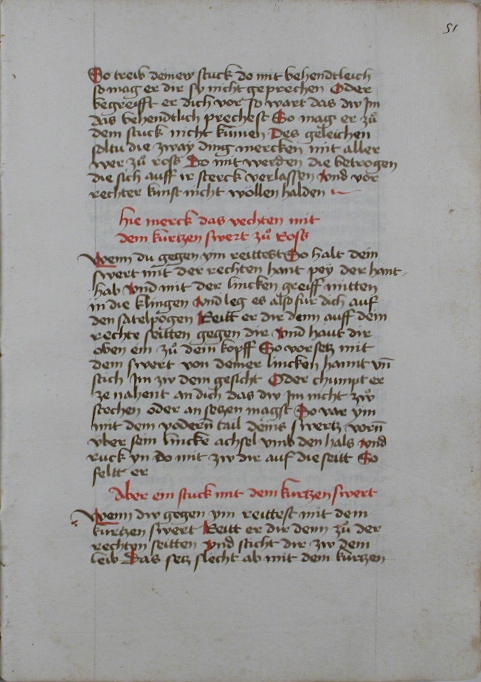 51
So treib deinew stuck do mit behendtleich
so mag er dir sy nicht geprechen Oder
begreifft er dich vor so wart das dw Jm
das behendtlich prechest So mag er zů
dem stuck nicht kumen Des geleichen
soltu die zway ding mercken mit aller
wer zů roß Do mit werden die betrogen
die sich auff ir sterck verlassen vnd vor
rechter kunst nicht wollen halden
hie merck das vechten mit
dem kurtzen swert zů Ross
Wenn du gegen ym reittest So halt dein
swert mit der rechten hant pey der hant
hab vnd mit der lincken greiff mitten
in die klingen vnd leg es also für dich auf
den satelpogen Reitt er dir denn auff dein
rechte seitten gegen dir vnd haut dir
oben ein zů dem kopff So vorsetz mit
dem swert von deiner lincken hannt vn
stich Jm zw dem gesicht Oder chumpt er
ze nahent an dich das dw Jm nicht zw
stechen oder an setzen magst So var ym
mit dem vodern tail deins swertz vorn
vber sein lincke achsel vmb den hals vnd
ruck yn do mit zw dir auf die seitt So
fellt er
Aber ein stuck mit dem kurtzen swert
Wenn dw gegen ym reittest mit dem
kurtzen swert Reitt er dir denn zů der
rechten seitten vnd sticht dir zw dem
leib Das setz slecht ab mit dem kurtzen